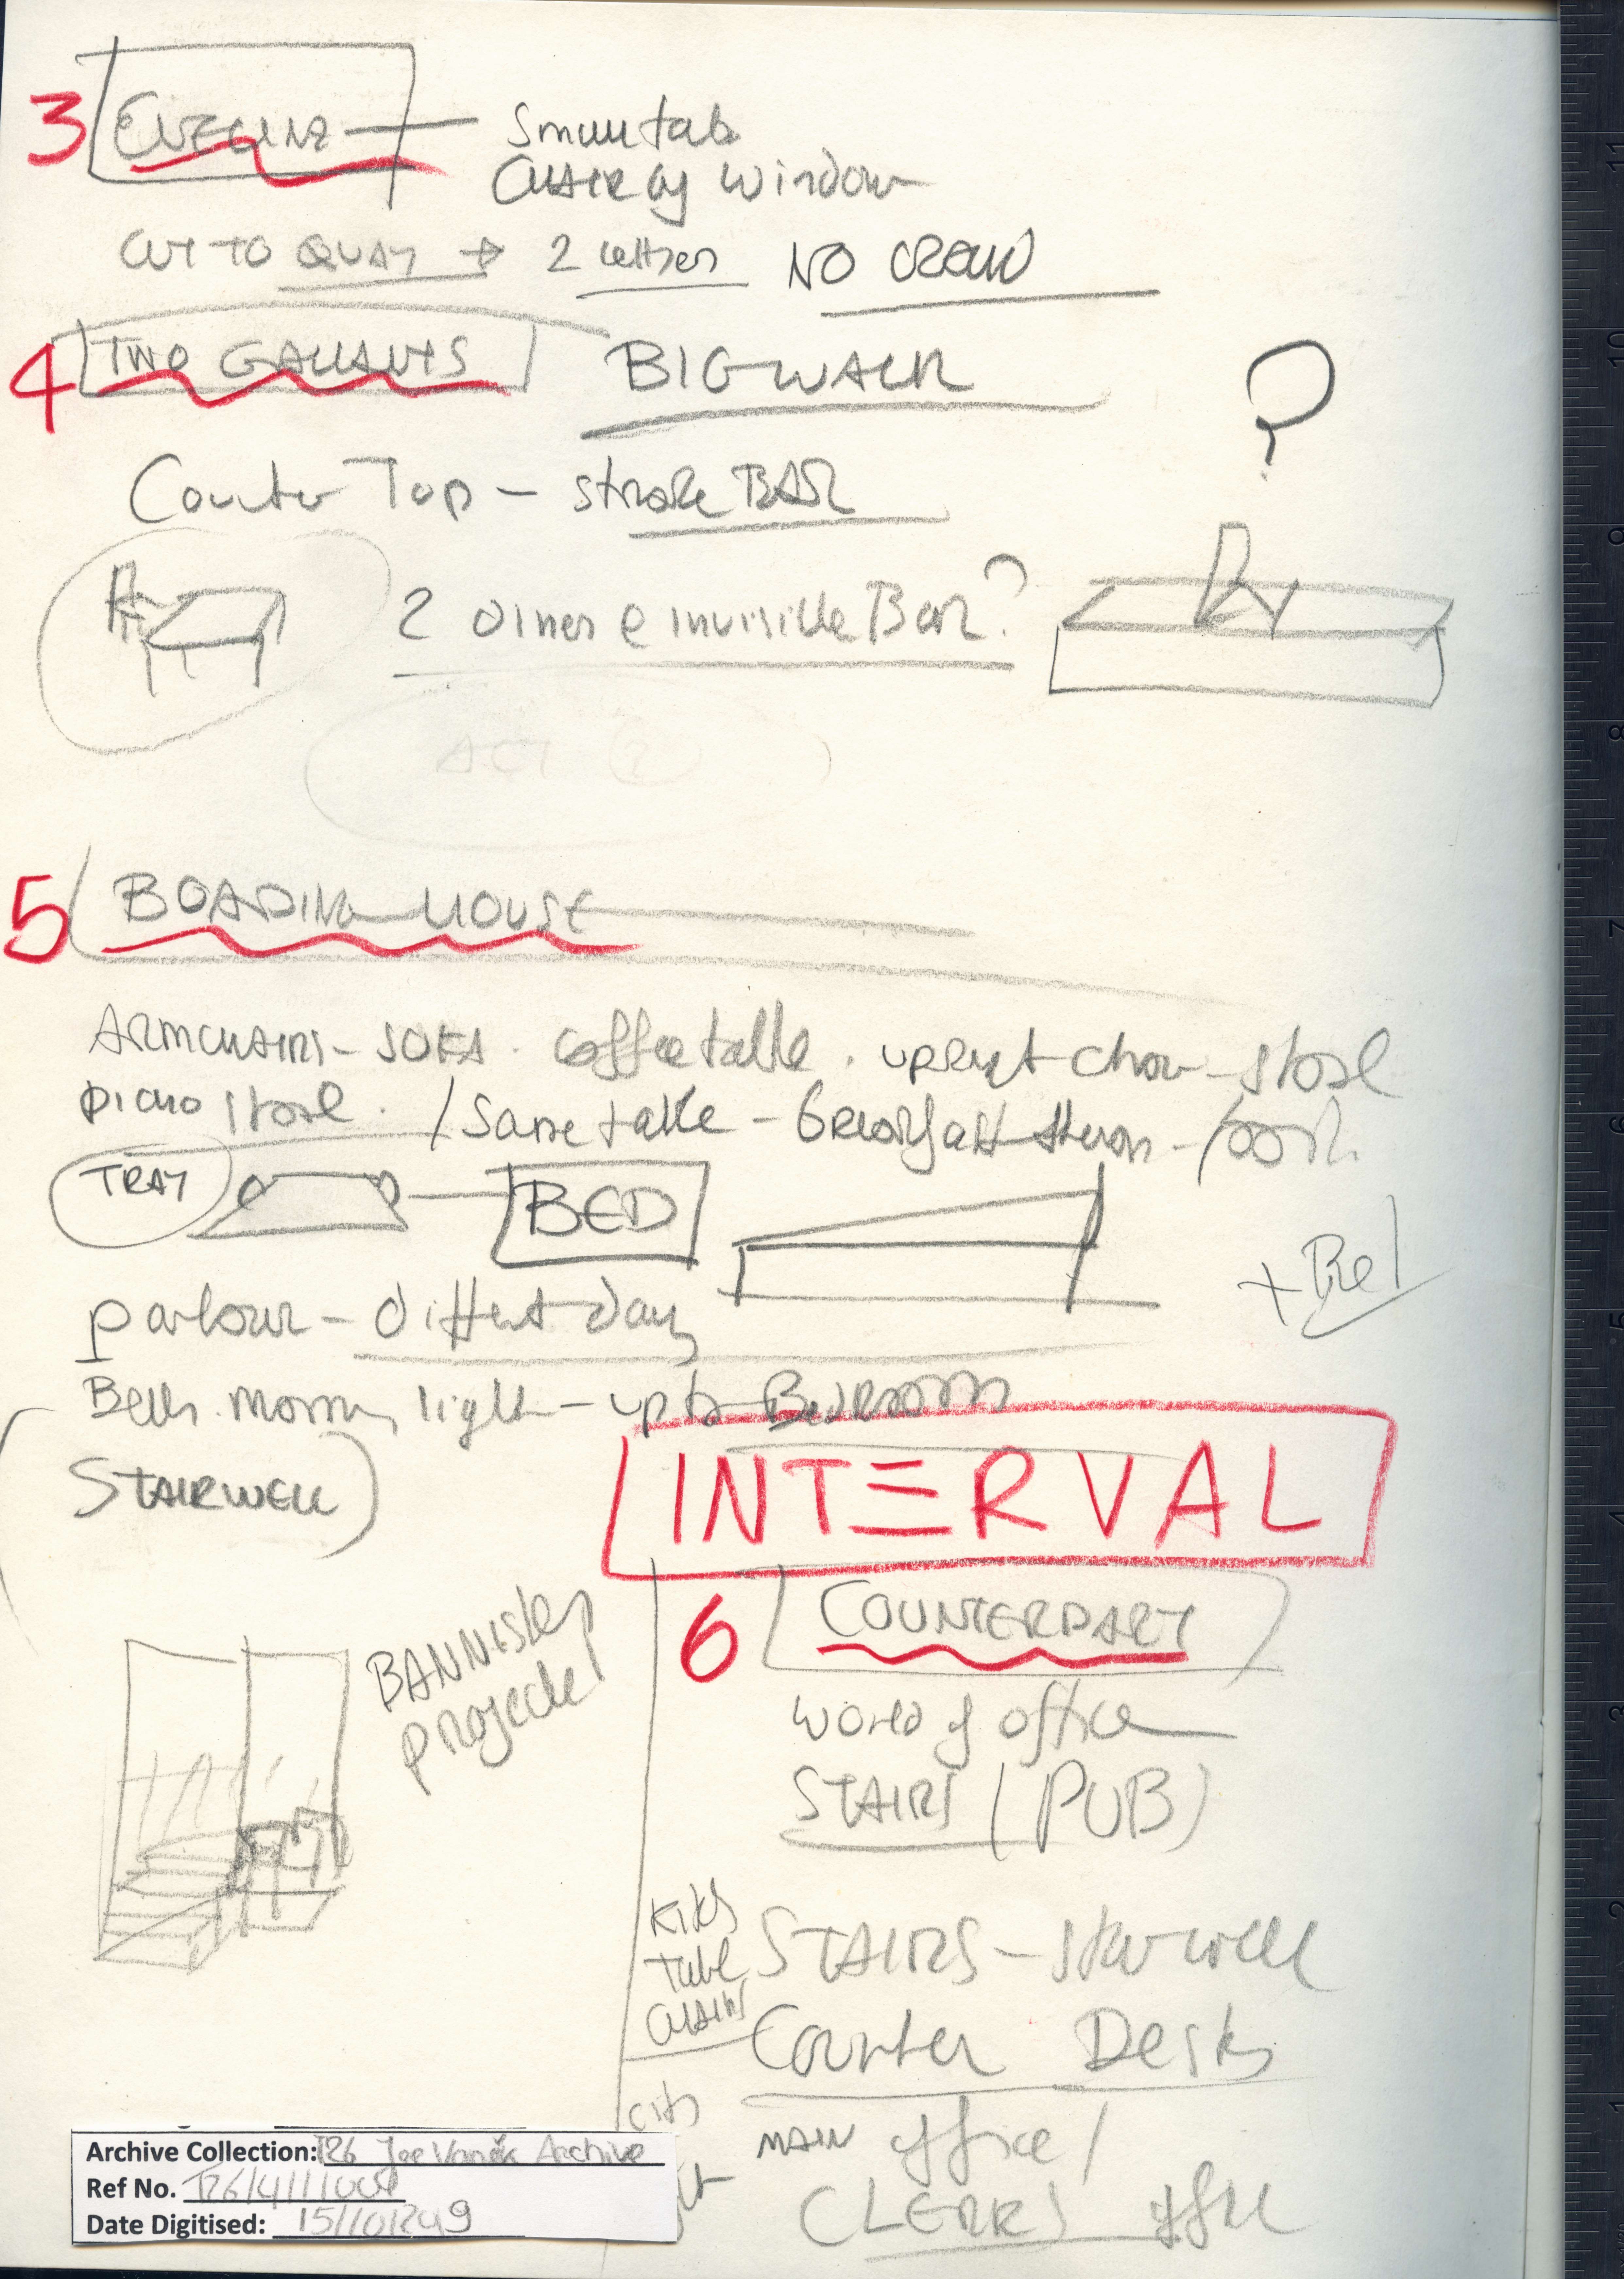 3 EVELINE — Small table
CHAIR by window
CUT TO QUAY → 2 letters NO CROWD
4 TWO GALLANTS BIG WALK
?
Counter Top – stroke BAR
2 diners e invisible Bar?
ACT
5 BOADING HOUSE
ARMCHAIRS – SOFA. coffee table. upright chair – stool
piano stool. / Same table – breakfast
TRAY BED
+ Bel
parlour – diffent day
Bells. morning light – up to Bedroom
STAIRWELL
INTERVAL
BANNISTER
projected
6 COUNTERPART
World of office
STAIRS (PUB)
Kids
Table
CHAIRS
STAIRS – stairwell
Counter Desks
MAIN office /
CLERKS office
Archive Collection: T26 Joe Vaněk Archive
Ref No. T26/4/1/
Date Digitised: 15/10/2019